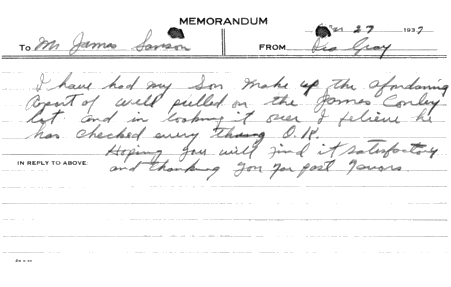 MEMORANDUM
27 1937
To Mr James
FROM Gray
I have had my Son make up the
of well pulled on the James Conley
and in looking it over I believe he
has checked every thing O.K.
Hoping you will find it satisfactory
IN REPLY TO ABOVE:
and thanking you for past favors.